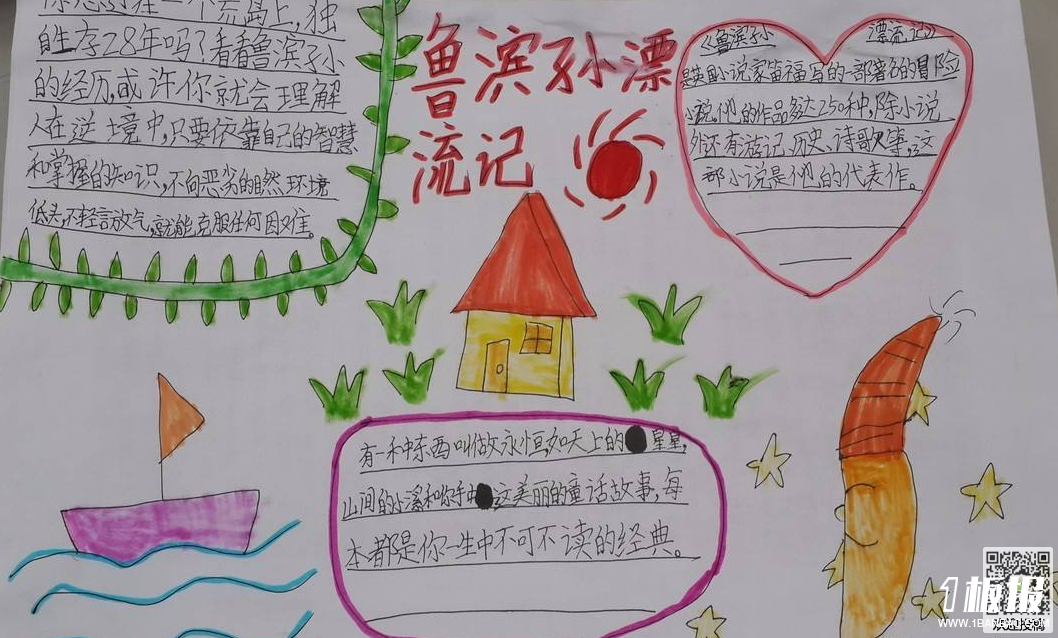 你想到在一个荒岛上,独
自生存28年吗?看看鲁滨孙
的经历,或许你就会理解
人在逆境中,只要依靠自己的智慧
和掌握的知识,不向恶劣的自然环境
低头,不轻言放气,就能克服任何困难。
鲁滨孙漂
流记
《鲁滨孙 漂流记》
是英国小说家笛福写的一部著名的冒险
小说。他的作品多达250种,除小说
外还有游记、历史、诗歌等,这
部小说是他的代表作。
有一种东西叫做永恒,如天上的星星,
山间的小溪和你手中这美丽的童话故事,每
本都是你一生中不可不读的经典。
1板报
WWW.1BANBAO.COM
欢迎投稿